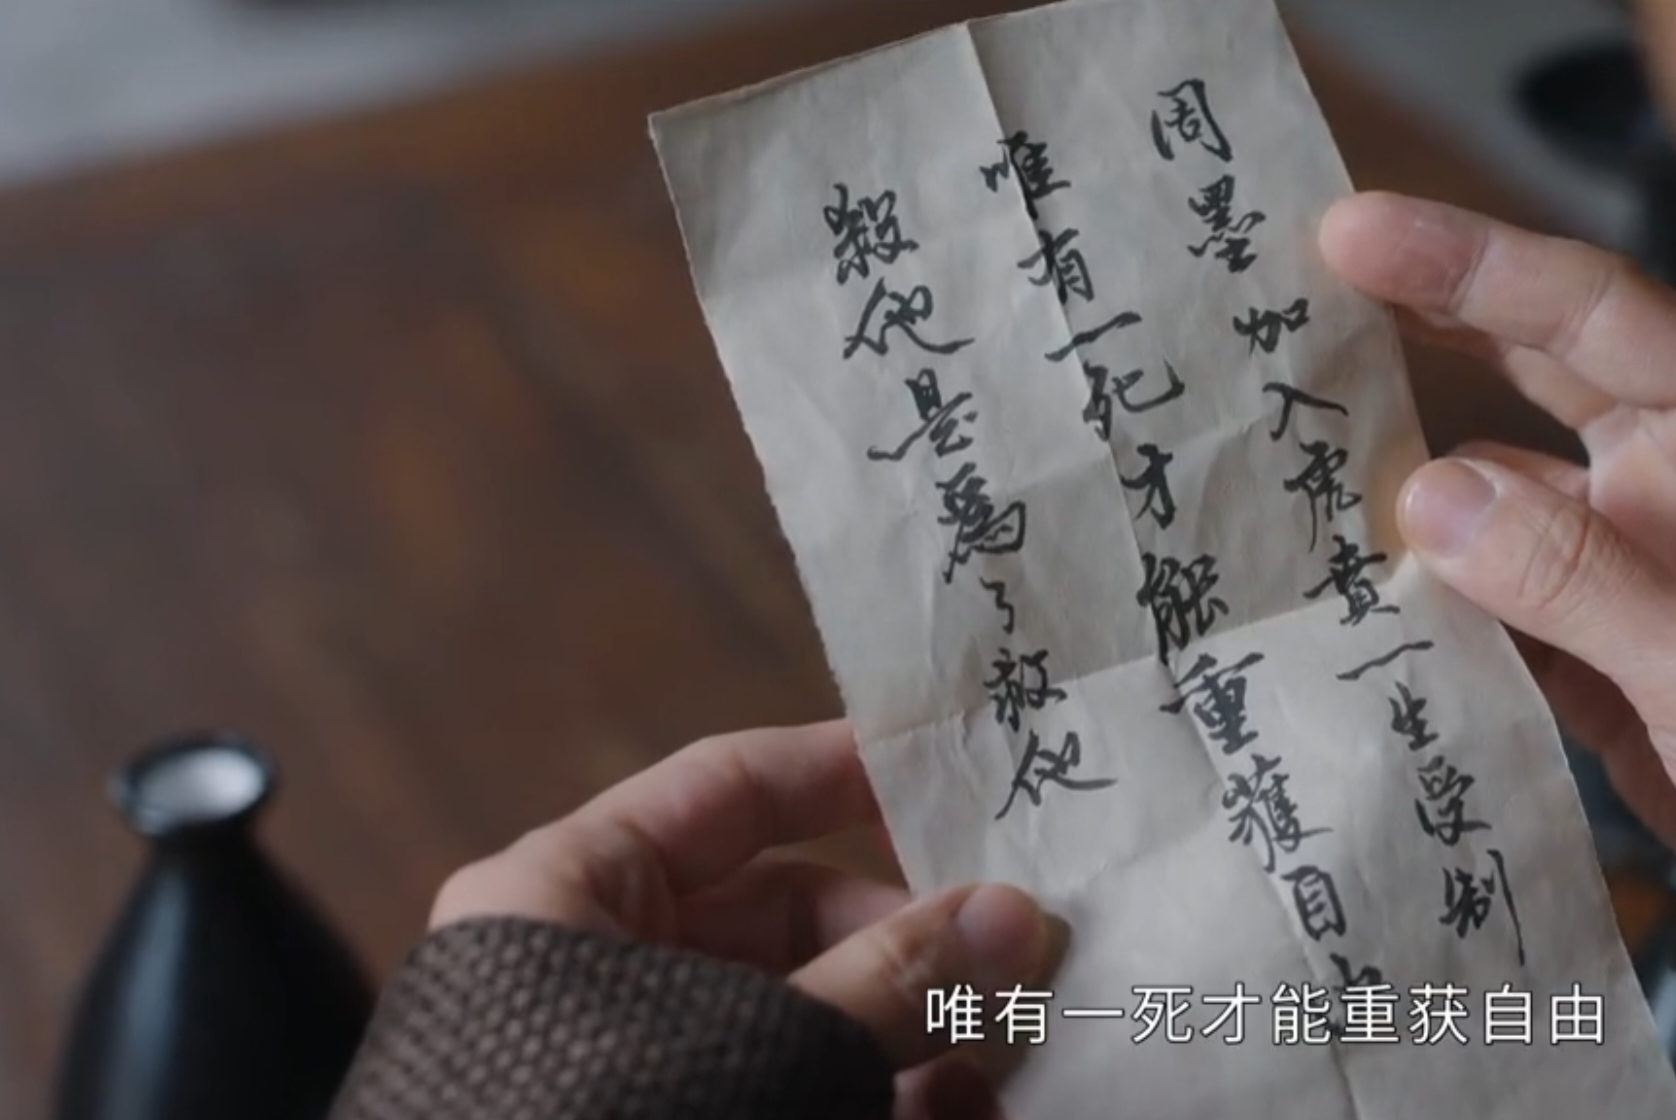 周墨加入虎賁一生受制
唯有一死才能重獲自由
殺他是爲了救他
唯有一死才能重获自由